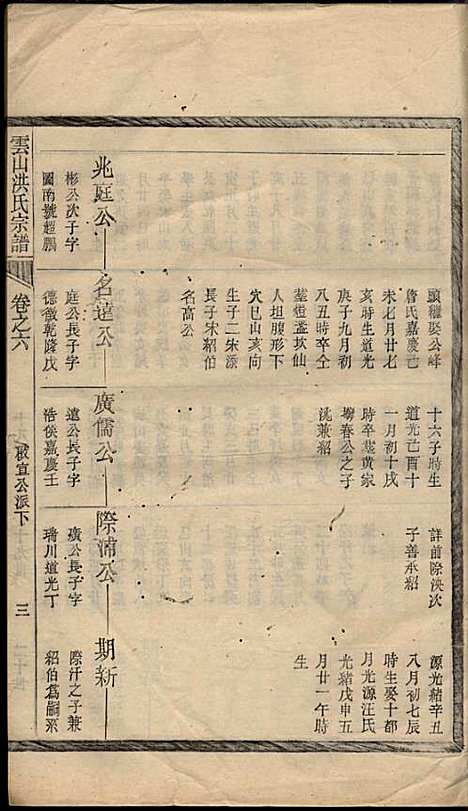 頭羅娶公峰
詹氏嘉慶己
未七月廿七
亥時生道光
庚子九月初
八丑時卒仝
塟燈盞坎仙
人坦腹形下
穴巳山亥向
生子二宋源
長子宋紹伯
名高公
十六子時生
道光己酉十
一月初十戌
時卒塟黄家
塝春公之子
洮兼紹
詳前際洮次
子善承紹
源光緒辛丑
八月初七辰
時生娶十都
月光源汪氏
光緒戊申五
月廿一午時
生
兆庭公
名達公
廣儒公
際浦公
期新
彬公次子字
圖南號超鵬
庭公長子字
德徵乾隆戊
達公長子字
浩侯嘉慶壬
廣公長子字
琇川道光丁
際汗之子兼
紹伯爲嗣乘
雲山洪氏宗譜
卷之六
啟宣公派下
三